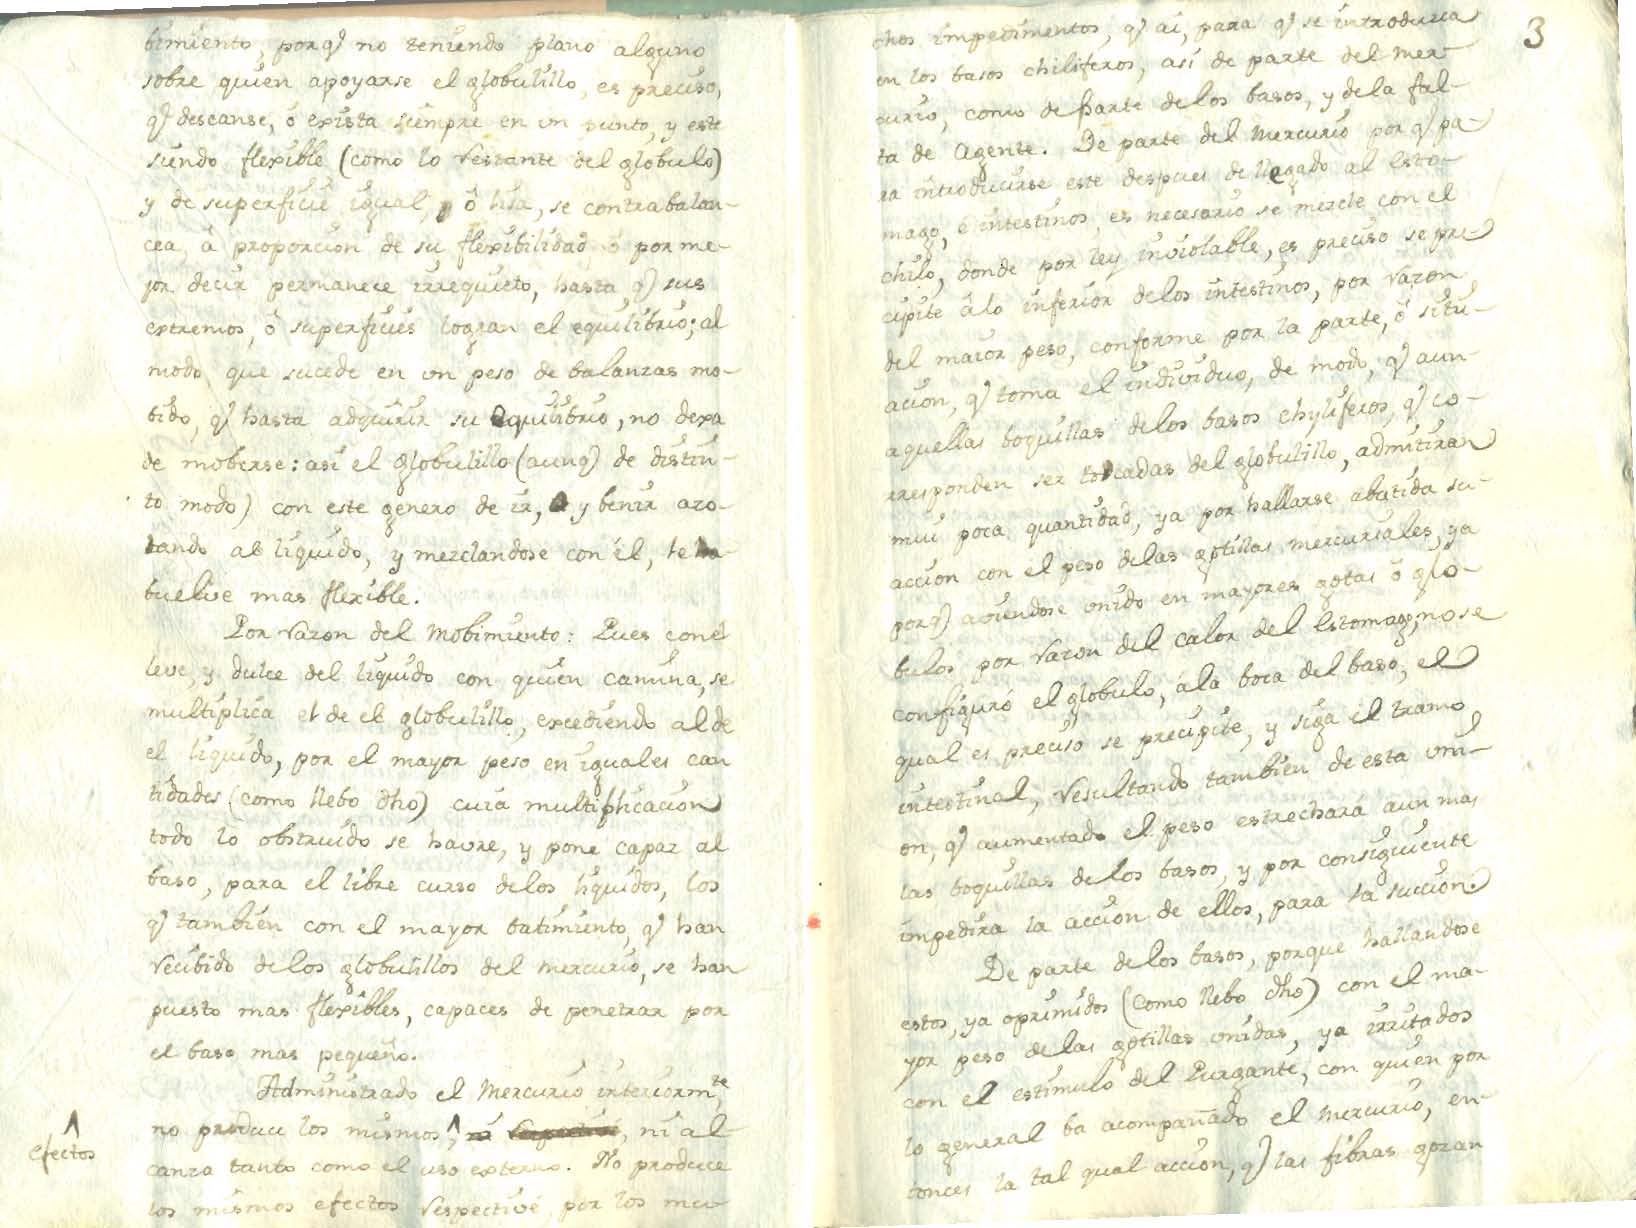 bimiento, porq̃ no teniendo plano alguno
sobre quien apoyarse el globulillo, es preciso,
q̃ descanse, ó exista siempre en un punto, y este
siendo flexible (como lo restante del globulo)
y de superficie igual, ó lisa, se contrabalan-
cea, á proporcion de su flexibilidad, ó por me-
jor decir permanece irrequieto, hasta q̃ sus
extremos, ó superficies logran el equilibrio; al
modo, que sucede en un peso de balanzas mo-
bido, q̃ hasta adquirir su equilibrio, no dexa
de moberse: asi el globulillo (aunq̃ de distin-
to modo) con este genero de ir, y benir azo-
tando al liquido, y mezclandose con él, le
buelve mas flexible.
Por razon del mobimiento: Pues con el
leve, y dulce del liquido con quien camina, se
multiplica el de el globulillo, excediendo al de
el liquido, por el mayor peso en iguales can
tidades (como llebo dho) cuia multiplicacion
todo lo obstruido se havre, y pone capaz al
baso, para el libre curso de los liquidos, los
q̃ tambien con el mayor batimiento, q̃ han
recibido de los globulillos del mercurio, se han
puesto mas flexibles, capaces de penetrar por
el baso mas pequeño.
Administrado el Mercurio interiormte,
no produce los mismos ^, ni, ni al
efectos
canza tanto como el uso externo. No produce
los mismos efectos respectivé por los mu
3
chos impedimentos, q̃ ai, para q̃ se introduzca
en los basos chiliferos, asi de parte del mer-
curio, como de parte de los basos, y de la fal-
ta de Agente. De parte del Mercurio porq̃ pa-
ra introducirse este despues de llegado al esto-
mago, é intestinos, es necesario se mezcle con el
chilo, donde por ley inviolable, es preciso se pre-
cipite á lo inferior de los intestinos, por razon
del maior peso, conforme por la parte, ó situ-
acion, q̃ toma el individuo, de modo, q̃ aun-
aquellas boquillas de los basos chyliferos, q̃ co-
rresponden ser tocadas del globulillo, admitiran
mui poca quantidad, ya por hallarse abatida su
accion con el peso de las gotillas mercuriales, ya
porq̃ aviendose unido en mayores gotas ó glo-
bulos, por razon del calor del Estomago, no se
configuró el globulo, á la boca del baso, el
qual es preciso se precipite, y siga el tramo
intestinal, resultando tambien de esta uni-
on, q̃ aumentado el peso estrechará aun mas
las boquillas de los basos, y por consiguiente
impedira la accion de ellos, para la succion.
De parte de los basos, porque hallandose
estos, ya oprimidos (como llebo dho) con el ma-
yor peso de las gotillas unidas, ya irritados
con el estimulo del Purgante, con quien por
lo general ba acompañado el mercurio, en-
tonces la tal qual accion, q̃ las fibras gozan